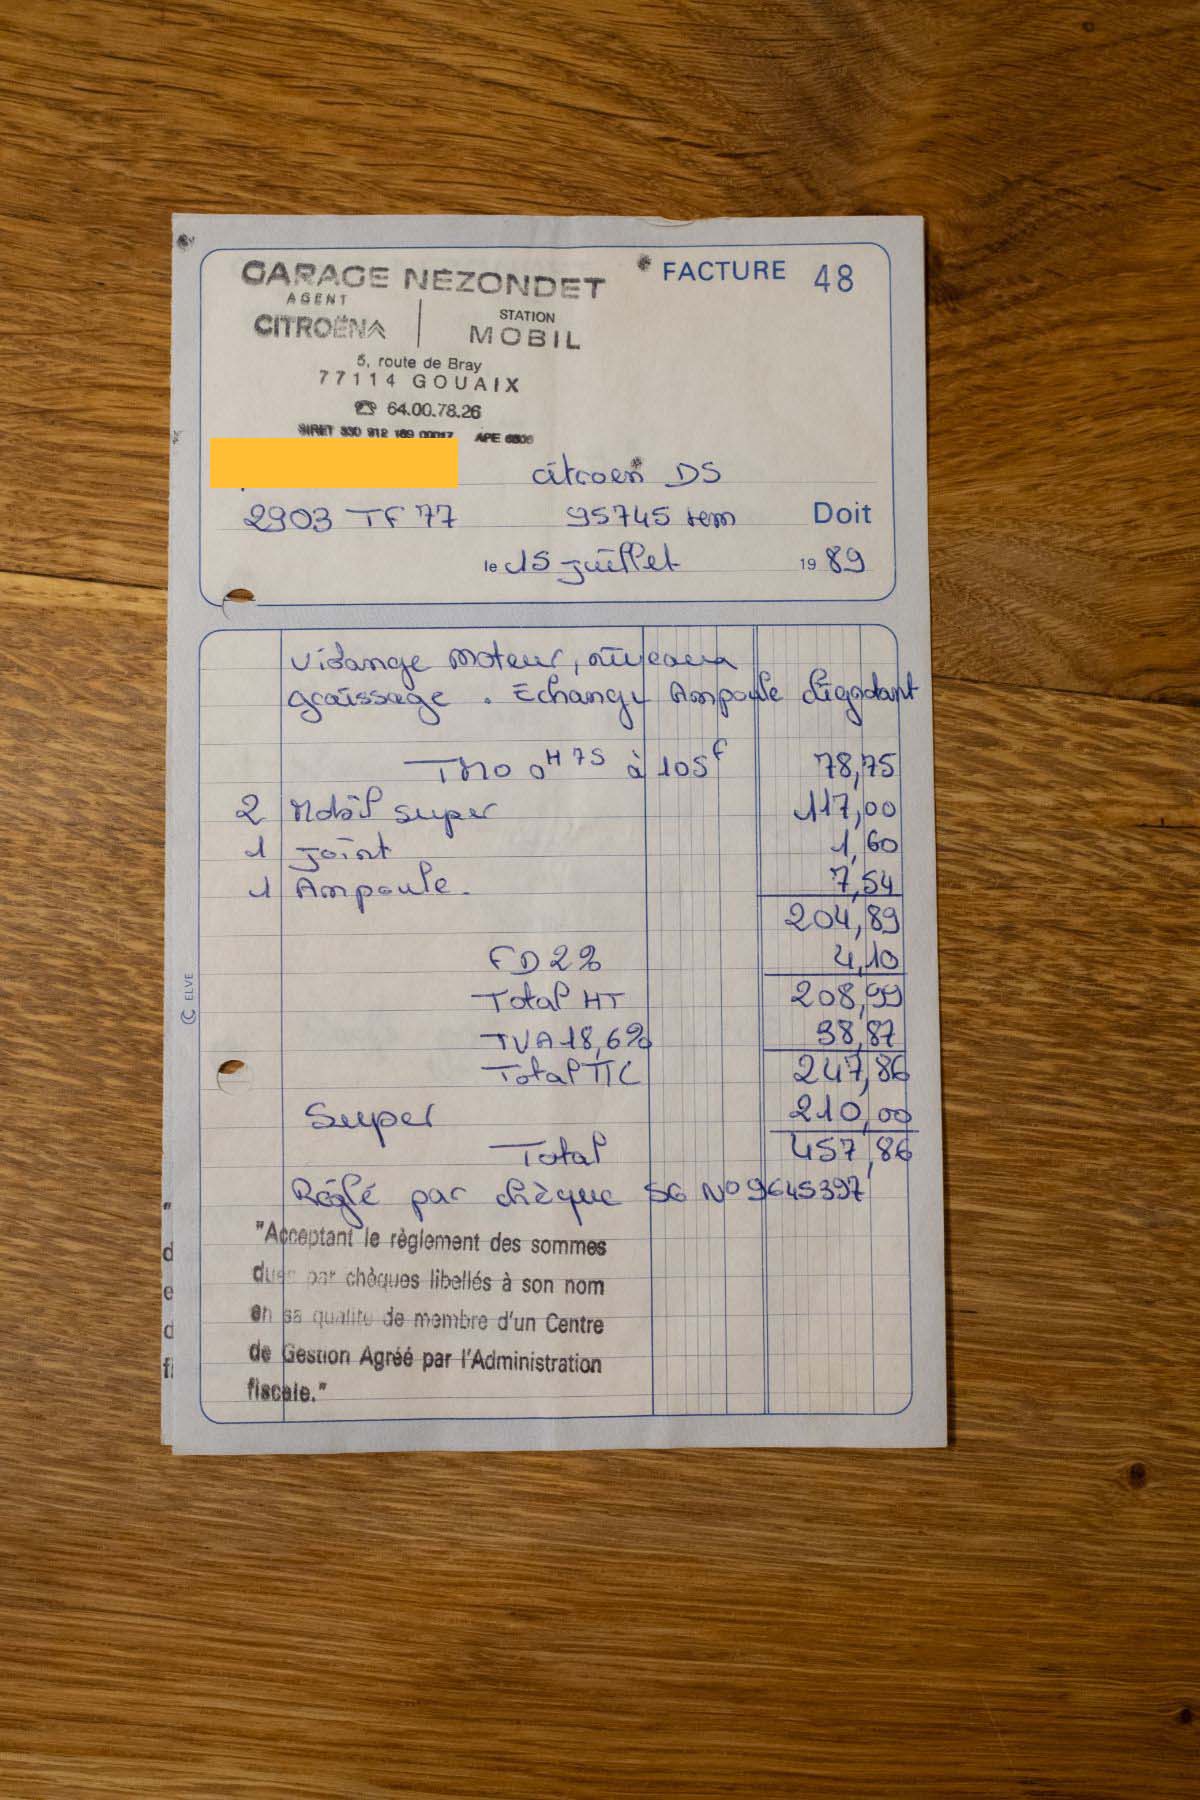 GARAGE NEZONDET
FACTURE 48
AGENT
CITROËN
STATION
MOBIL
5, route de Bray
77114 GOUAIX
☎ 64.00.78.26
SIRET 330 912 169 00017 APE 6506
Citroen DS
2903 TF 77 95745 km Doit
le 15 juillet 1989
Vidange moteur, niveaux
graissage. Echange Ampoule clignotant
TMO 0H75 à 105f 78,75
2 Mobil super 117,00
1 joint 1,60
1 Ampoule. 7,54
204,89
FD 2% 4,10
Total HT 208,99
TVA 18,6% 38,87
Total TTC 247,86
Super 210,00
Total 457,86
Réglé par chèque SG No 9645397
"Acceptant le règlement des sommes
dues par chèques libellés à son nom
en sa qualité de membre d'un Centre
de Gestion Agréé par l'Administration
fiscale."
ELVE
"
d
e
d
fi